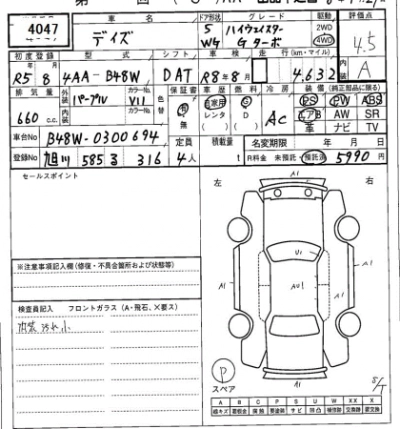 4047
車名
デイズ
ドア形状
5
WG
グレード
ハイウェイスター
Gターボ
駆動
2WD
4WD
評価点
4.5
初度登録
R5 8
型式
4AA-B48W
シフト
DAT
車検
R8年8月
走行 (km・マイル)
4,632
内装
A
排気量
660 c.c.
外装
パープル
カラーNo.
V11
内装
カラーNo.
色替
保証書
有
無
車歴
自家用
レンタ
( )
燃料
G
D
( )
冷房
AC
装備 (純正部品に限る)
PS PW ABS
エアB AW SR
革 ナビ TV
車台No
B48W-0300694
登録No
旭川 585 る 316
定員
4人
積載量
t
名変期限 年 月 日
R料金 未預託・預託済 5990 円
セールスポイント
左 右
※注意事項記入欄 (修復・不具合箇所および状態等)
検査員記入 フロントガラス (A・飛石、×要ス)
内装汚れ小
A1
A1
U1
AU1
A1
A1
A1
P
スペア
5/T
A B C P S U W X XX